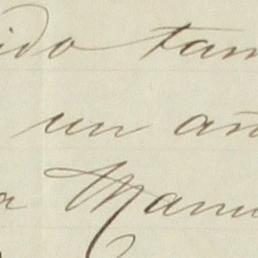 ido tam
un añ
a Manu